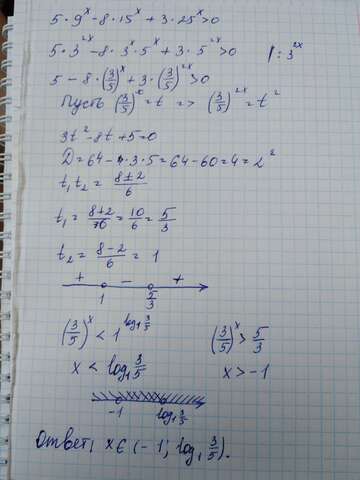 5·9^x - 8·15^x + 3·25^x > 0
5·3^{2x} - 8·3^x·5^x + 3·5^{2x} > 0 |: 3^{2x}
5 - 8·(3/5)^x + 3·(3/5)^{2x} > 0
Пусть (3/5)^x = t => (3/5)^{2x} = t^2
3t^2 - 8t + 5 = 0
D = 64 - 4·3·5 = 64 - 60 = 4 = 2^2
t₁ t₂ = (8 ± 2)/6
t₁ = (8+2)/6 = 10/6 = 5/3
t₂ = (8-2)/6 = 1
+ - +
1 5/3
(3/5)^x < 1^{log₁ 3/5} (3/5)^x > 5/3
x < log₁ 3/5 x > -1
-1 log₁ 3/5
Ответ: x ∈ (-1; log₁ (3/5)).